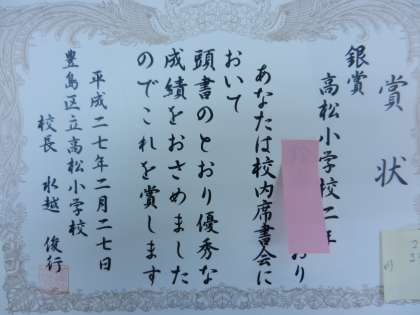 賞状
銀賞
高松小学校二年
おり
あなたは校内席書会に
おいて
頭書のとおり優秀な
成績をおさめました
のでこれを賞します
平成二七年二月二七日
豊島区立高松小学校
校長 水越 俊行